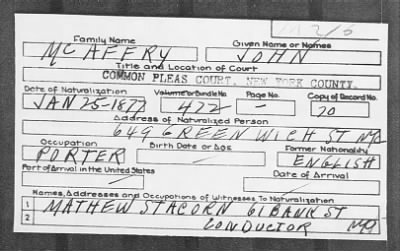 Family Name Given Name or Names
McAFFRY JOHN
Title and Location of Court
COMMON PLEAS COURT, NEW YORK COUNTY.
Date of Naturalization Volume or Bundle No. Page No. Copy of Record No.
JAN 25-1877 472 - 20
Address of Naturalized Person
649 GREENWICH ST NYC
Occupation Birth Date or Age Former Nationality
PORTER ENGLISH
Port of Arrival in the United States Date of Arrival
Names, Addresses and Occupations of Witnesses To Naturalization
1 MATHEW STACORN 61 BANK ST
2 CONDUCTOR NYC